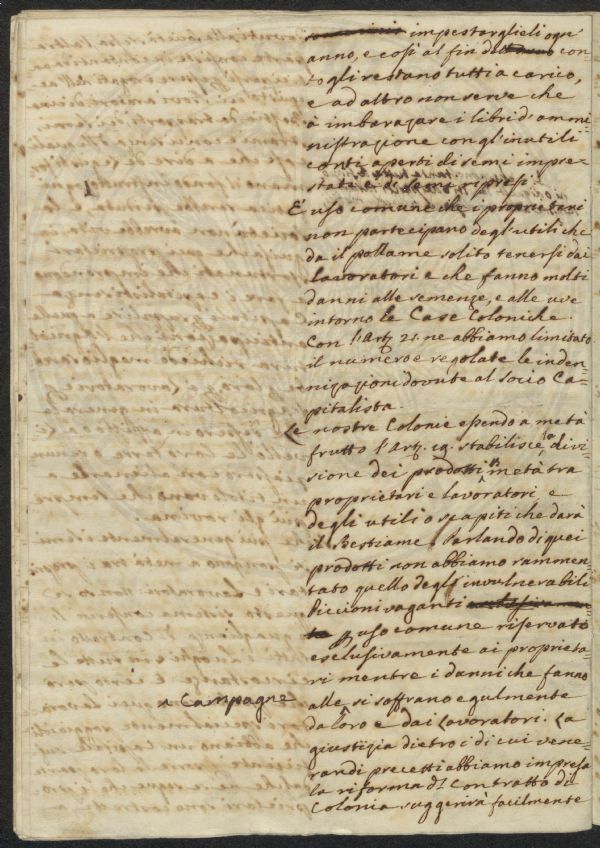 impestarglieli ogni
anno, e così al fin del con-
to gli restano tutti a carico,
e ad altro non serve che
à imbarazare i libri d'ammi
nistrazione con gl'inutili
conti aperti di semi impre-
stati e di semi ripresi.
E' uso comune che i proprietari
non partecipano degl'utili che
da il pollame solito tenersi dai
lavoratori e che fanno molti
danni alle semenze, e alle uve
intorno le Case Coloniche.
Con l'Artº 21. ne abbiamo limitato
il numero e regolate le inden-
nizazioni dovute al socio Ca-
pitalista.
Le nostre Colonie essendo a metà
frutto l'Artº. 19. stabilisce la divi-
sione dei prodotti in metà tra
proprietari e lavoratori, e
degli utili o scapiti che darà
il Bestiame. Parlando di quei
prodotti non abbiamo rammen-
tato quello degl'invulnerabili
Piccioni vaganti
P uso comune riservato
esclusivamente ai proprieta-
ri mentre i danni che fanno
alle si soffrano egulmente
^ Campagne
da loro e dai Lavoratori. La
giustizia dietro i di cui vene-
randi precetti abbiamo impresa
la riforma dl Contratto di
Colonia suggerirà facilmente